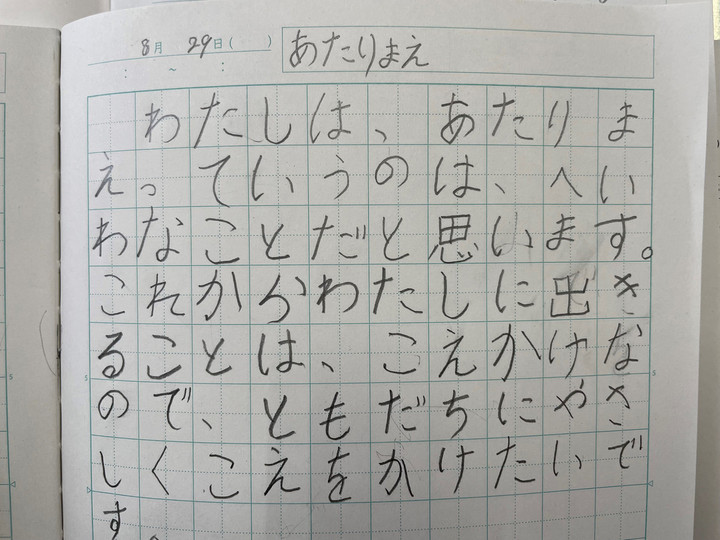 8月 29日( ) あたりまえ
: ~ :
わたしは、あたりま
えっていうのは、へい
わなことだと思います。
これからわたしに出き
ることは、こえかけな
ので、ともだちにやさ
しくこえをかけたいで
す。